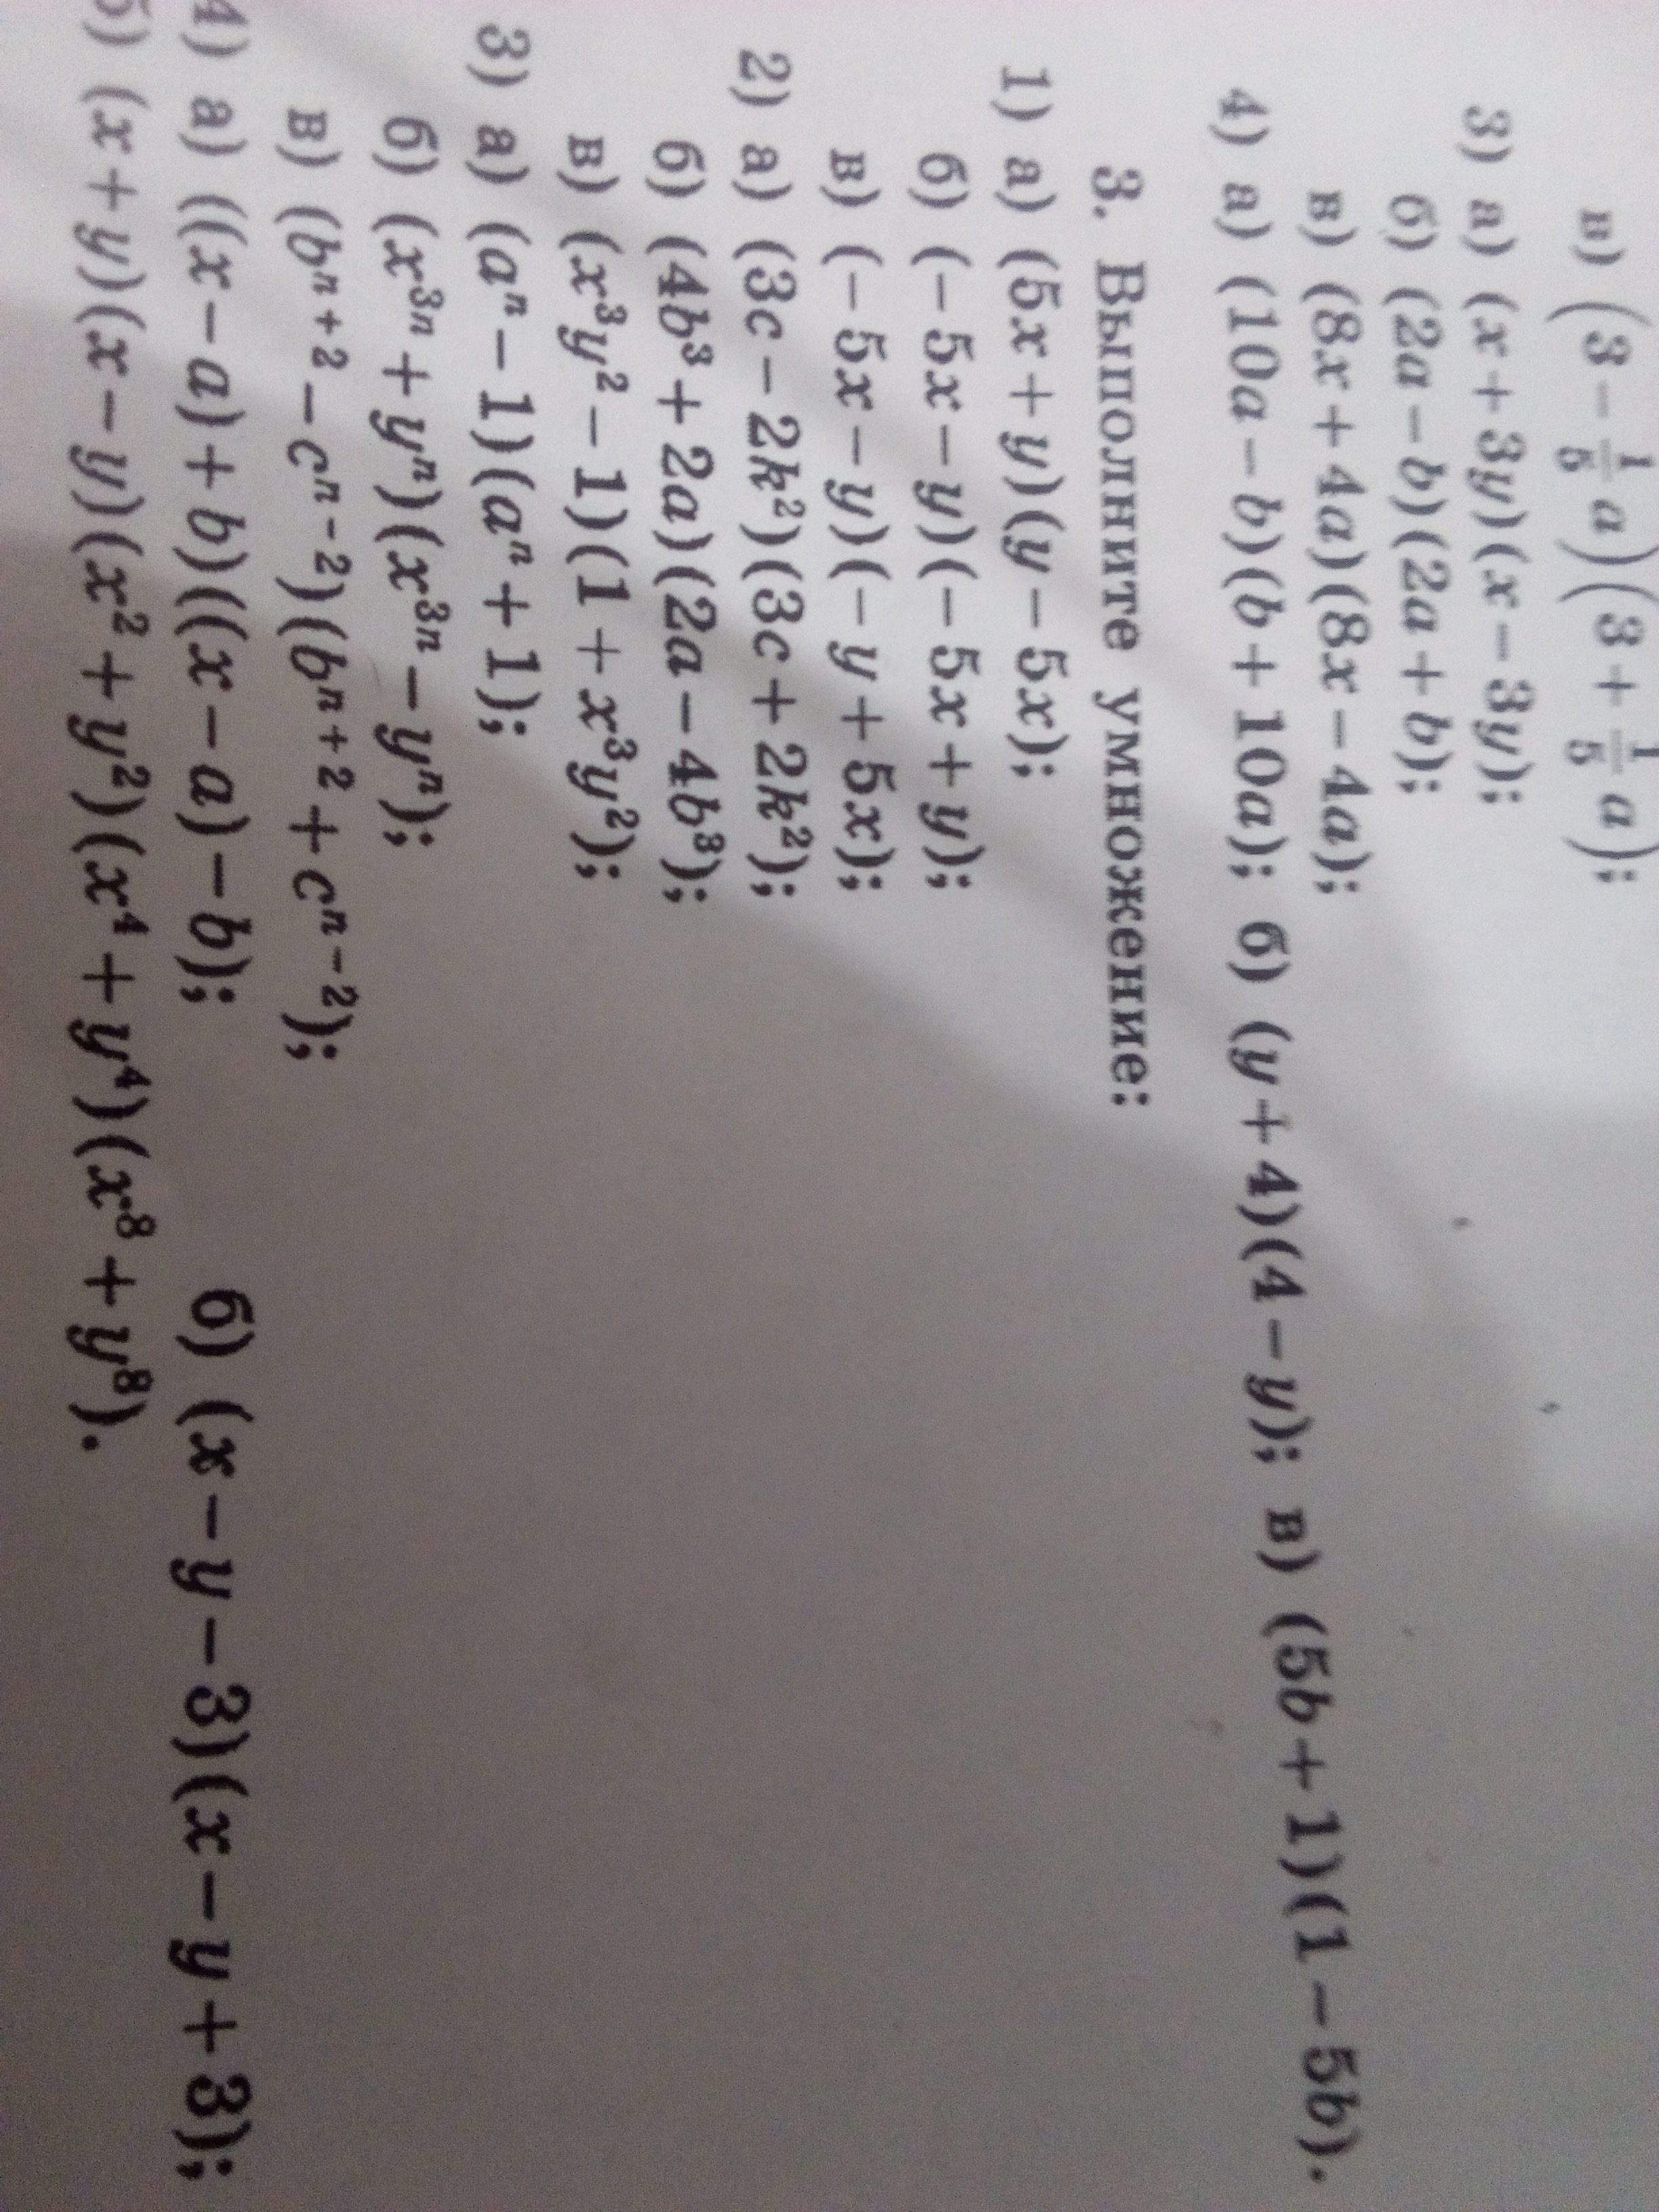 в) (3 − 1/5 a)(3 + 1/5 a);
3) а) (x + 3y)(x − 3y);
б) (2a − b)(2a + b);
в) (8x + 4a)(8x − 4a);
4) а) (10a − b)(b + 10a); б) (y + 4)(4 − y); в) (5b + 1)(1 − 5b).
3. Выполните умножение:
1) а) (5x + y)(y − 5x);
б) (− 5x − y)(− 5x + y);
в) (− 5x − y)(− y + 5x);
2) а) (3c − 2k²)(3c + 2k²);
б) (4b³ + 2a)(2a − 4b³);
в) (x³y² − 1)(1 + x³y²);
3) а) (aⁿ − 1)(aⁿ + 1);
б) (x³ⁿ + yⁿ)(x³ⁿ − yⁿ);
в) (bⁿ⁺² − cⁿ⁻²)(bⁿ⁺² + cⁿ⁻²);
4) а) ((x − a) + b)((x − a) − b); б) (x − y − 3)(x − y + 3);
5) (x + y)(x − y)(x² + y²)(x⁴ + y⁴)(x⁸ + y⁸).